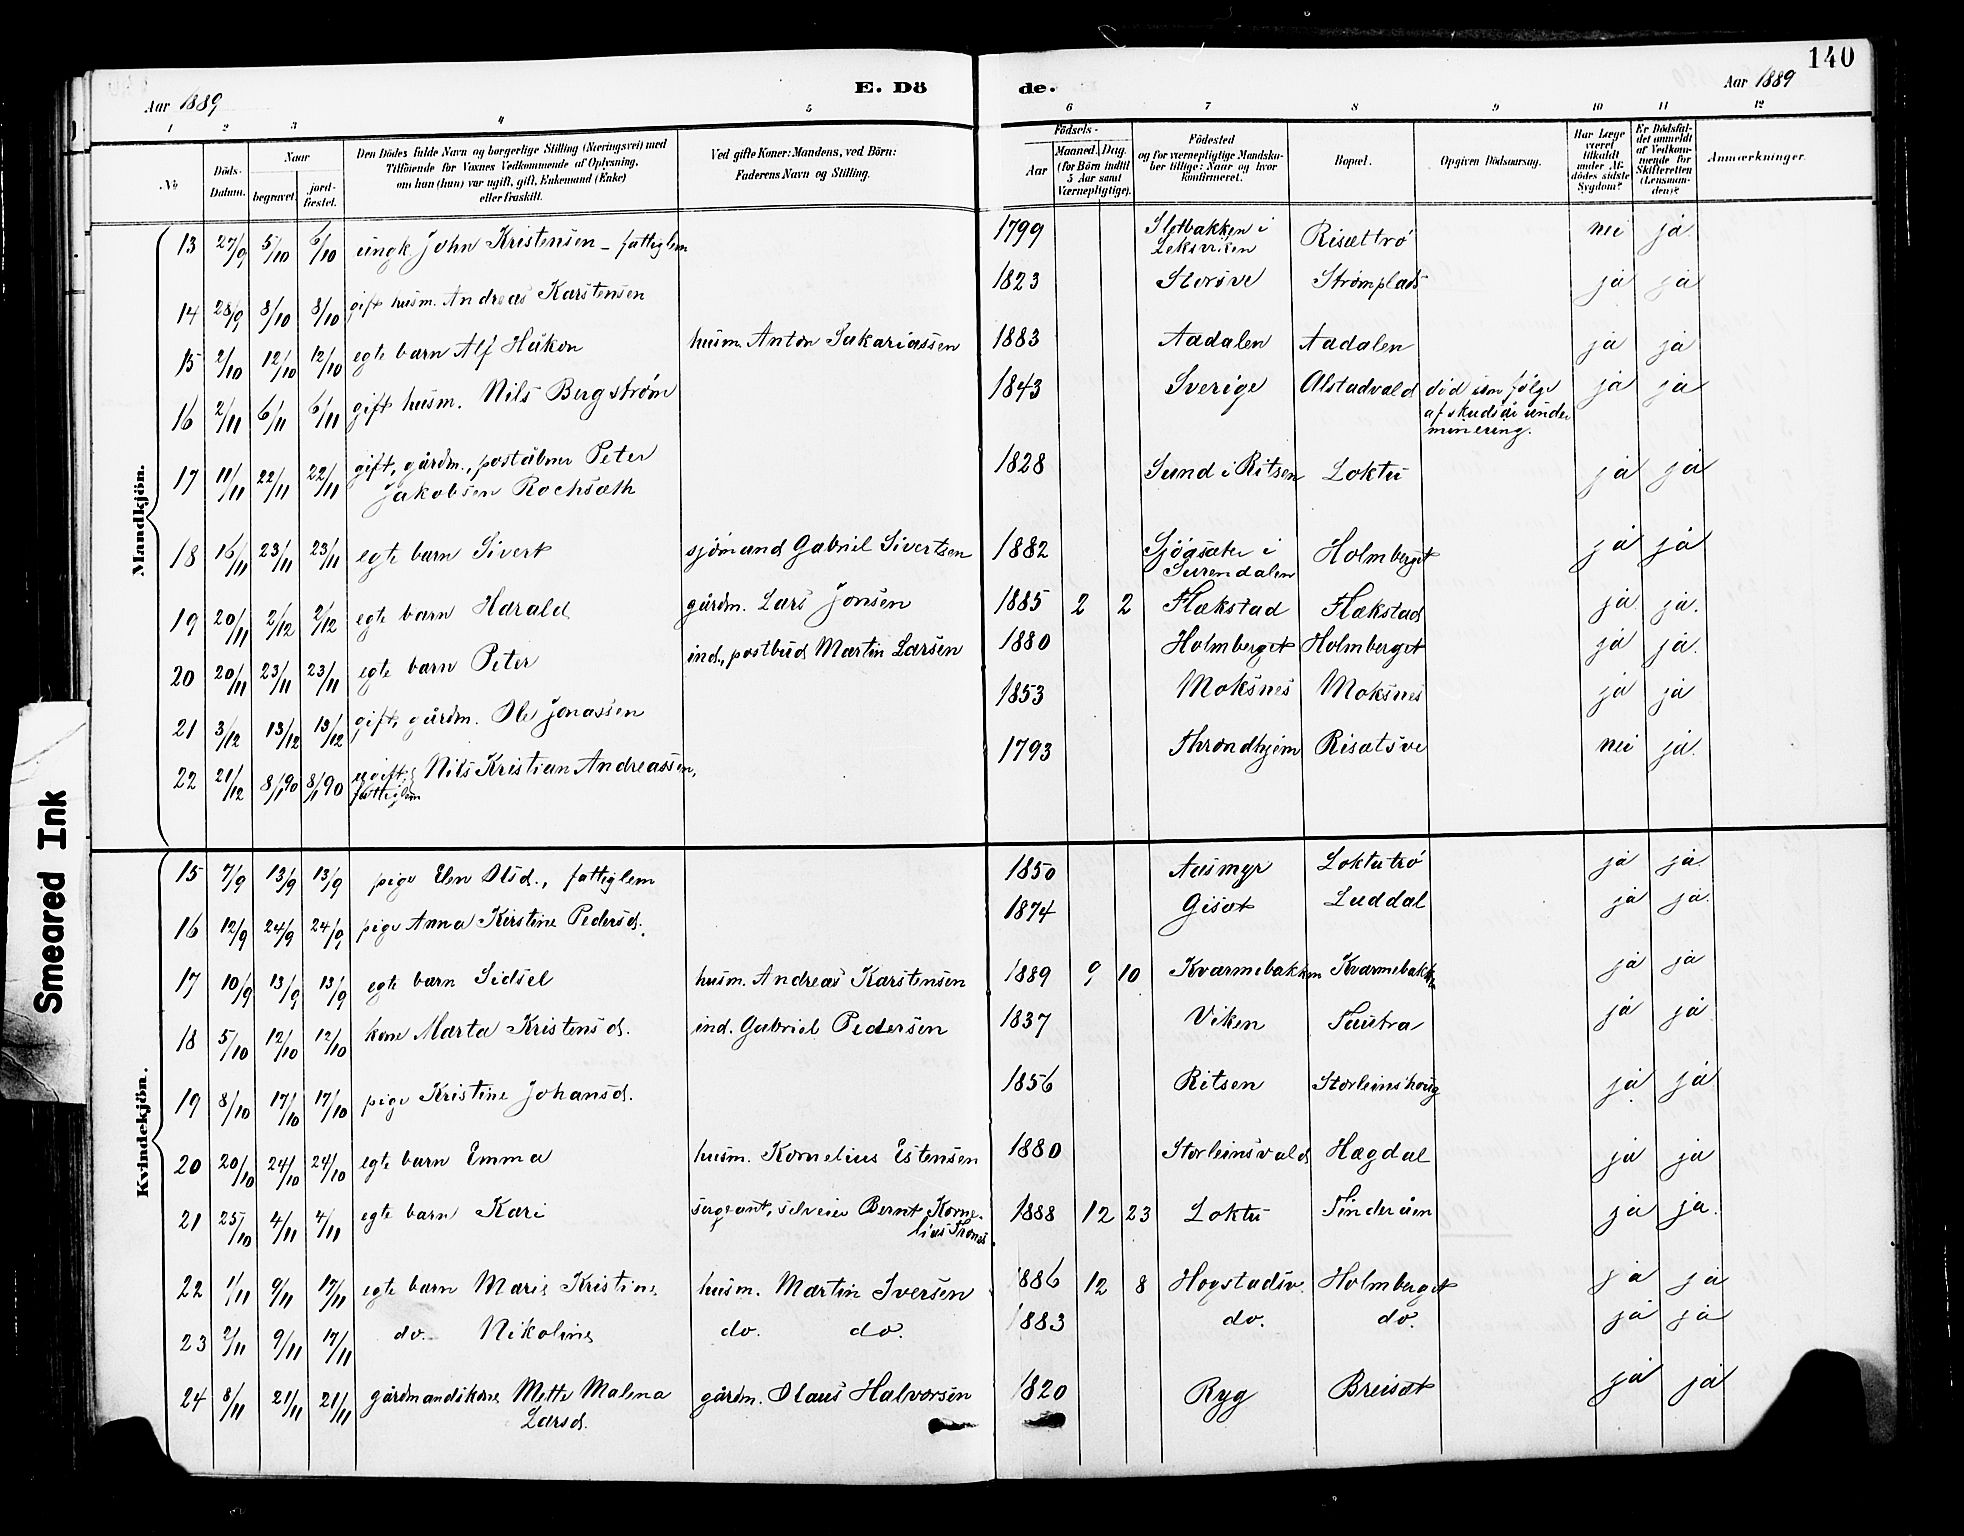 140
Aar 1889
E. Dö de.
Aar 1889
1 2 3 4 5 6 7 8 9 10 11 12
No
Döds-Datum.
Naar
begravet.
jordfæstet.
Den Dödes fulde Navn og borgerlige Stilling (Næringsvei) med
Tilföiende for Voxnes Vedkommende af Oplysning,
om han (hun) var ugift, gift, Enkemand (Enke)
eller fraskilt.
Ved gifte Koner: Mandens, ved Börn:
Faderens Navn og Stilling.
Födsels-
Aar
Maaned. Dag.
(for Börn indtil
5 Aar samt
Værnepligtige).
Födested
og for værnepligtige Mandska-
ber tillige: Naar og hvor
konfirmeret.
Bopæl.
Opgiven Dödsaarsag.
Har Læge
været
tilkaldt
under Af-
dödes sidste
Sygdom?
Er Dödsfal-
det anmeldt
af Vedkom-
mende for
Skifteretten
(Lensman-
den)?
Anmærkninger.
Mandkjön.
13 27/9 5/10 6/10 ungk. John Kristensen – fattiglem 1799 Sletbakken i Leksviken Risættrø nei ja
14 28/9 8/10 8/10 gift husm. Andreas Karstensen 1823 Storøve Strømplads ja ja
15 2/10 12/10 12/10 egte barn Alf Håkon husm. Anton Sakariassen 1883 Aadalen Aadalen ja ja
16 2/11 6/11 6/11 gift husm. Nils Bergstrøm 1843 Sverige Alstadvald død som følge af skudsår under minering. ja ja
17 11/11 22/11 22/11 gift, gårdm., poståbner Peter Jakobsen Rochsæth 1828 Sund i Ritsen Loktu ja ja
18 16/11 23/11 23/11 egte barn Sivert sjømand Gabriel Sivertsen 1882 Sjøasæter i Surendalen Holmberget ja ja
19 20/11 2/12 2/12 egte barn Harald gårdm. Lars Jonsen 1885 2 2 Flækstad Flækstad ja ja.
20 20/11 23/11 23/11 egte barn Peter ind., postbud Martin Larsen 1880 Holmberget Holmberget ja ja.
21 3/12 13/12 13/12 gift, gårdm. Ole Jonassen 1853 Moksnes Moksnes ja ja
22 21/12 8/1 90 8/1 90 ugift, fattiglem Nils Kristian Andreassen, 1793 Throndhjem Risætsve nei ja.
Kvindekjön.
15 7/9 13/9 13/9 pige Elen Olsd., fattiglem 1850 Aasmyr Loktutrø ja ja
16 12/9 24/9 24/9 pige Anna Kirstine Pedersd. 1874 Gisæt Luddal ja ja.
17 10/9 13/9 13/9 egte barn Sidsel husm. Andreas Karstensen 1889 9 10 Kvarmebakken Kvarmebakken ja ja
18 5/10 12/10 12/10 kone Marta Kristensd. ind. Gabriel Pedersen 1837 Viken Tautra ja ja
19 8/10 17/10 17/10 pige Kristine Johansd. 1856 Ritsen Storleinshoug ja ja
20 20/10 24/10 24/10 egte barn Emma husm. Kornelius Estensen 1880 Storleinsvald Hægdal ja ja
21 25/10 4/11 4/11 egte barn Kari sergeant, selveier Bernt Kornelius Thones. 1888 12 23 Loktu Tinderåen ja ja.
22 1/11 9/11 17/11 egte barn Marie Kristine husm. Martin Iversen 1886 12 8 Hogstadsv. Holmberget ja ja
23 2/11 9/11 17/11 do. Nikoline do. do. 1883 do. do. ja ja
24 8/11 21/11 21/11 gårdmandskone Mette Malena Larsd. gårdm. Olaus Halvorsen 1820 Ryg Breisæt ja ja
Smeared Ink